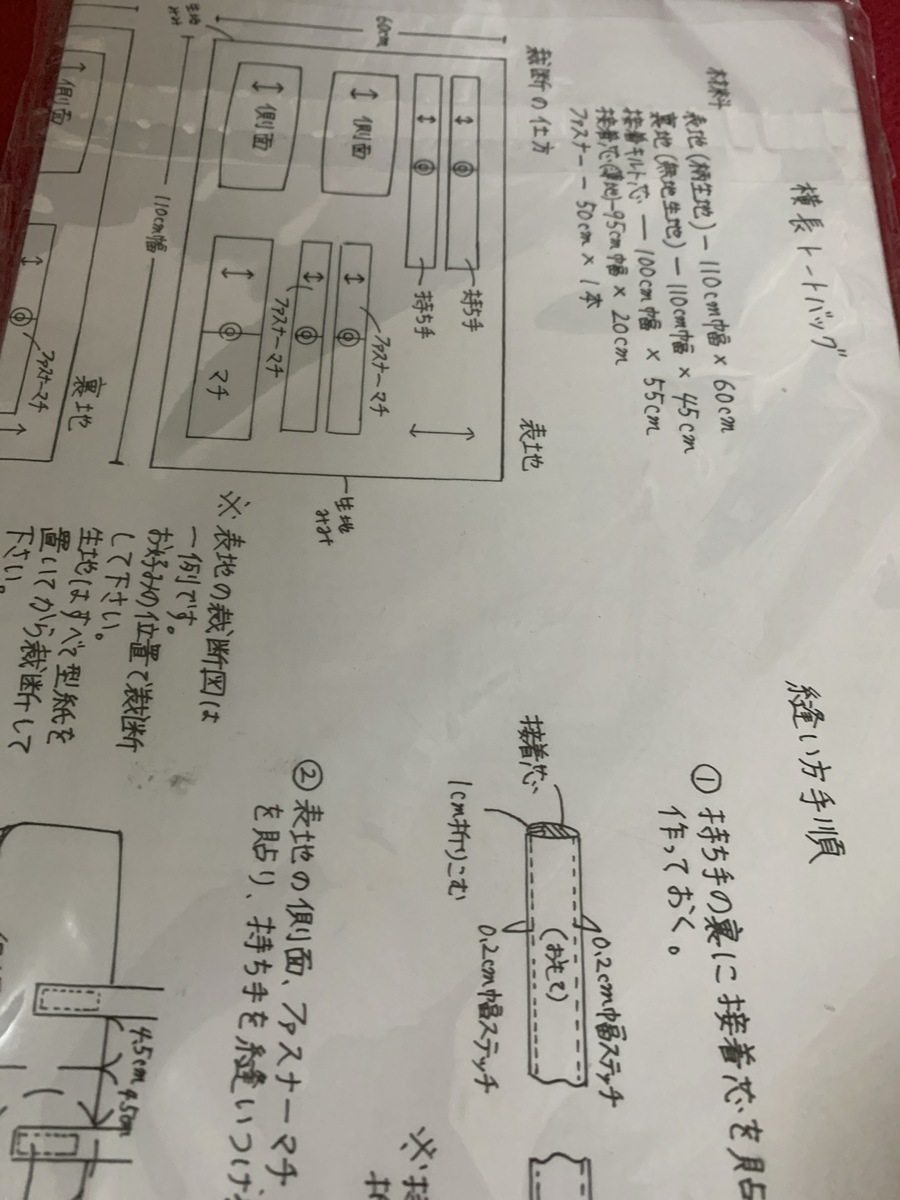 横長トートバッグ
材料
表地(柄生地)−110cm幅×60cm
裏地(無地生地)−110cm幅×45cm
接着キルト芯−100cm幅×55cm
接着芯(薄地)−95cm幅×20cm
ファスナー−50cm×1本
裁断の仕方
表地
60cm
生地
みみ
持ち手
持ち手
側面
側面
ファスナーマチ
ファスナーマチ
マチ
110cm幅
生地
みみ
側面
ファスナーマチ
裏地
※表地の裁断図は
一例です。
お好みの位置で裁断
して下さい。
生地はすべて型紙を
置いてから裁断して
下さい。
縫い方手順
① 持ち手の裏に接着芯を貼
作っておく。
接着芯
1cm折りこむ
0.2cm幅ステッチ
(おもて)
0.2cm幅ステッチ
② 表地の側面、ファスナーマチ
を貼り、持ち手を縫いつけ
4.5cm
4.5cm
※持